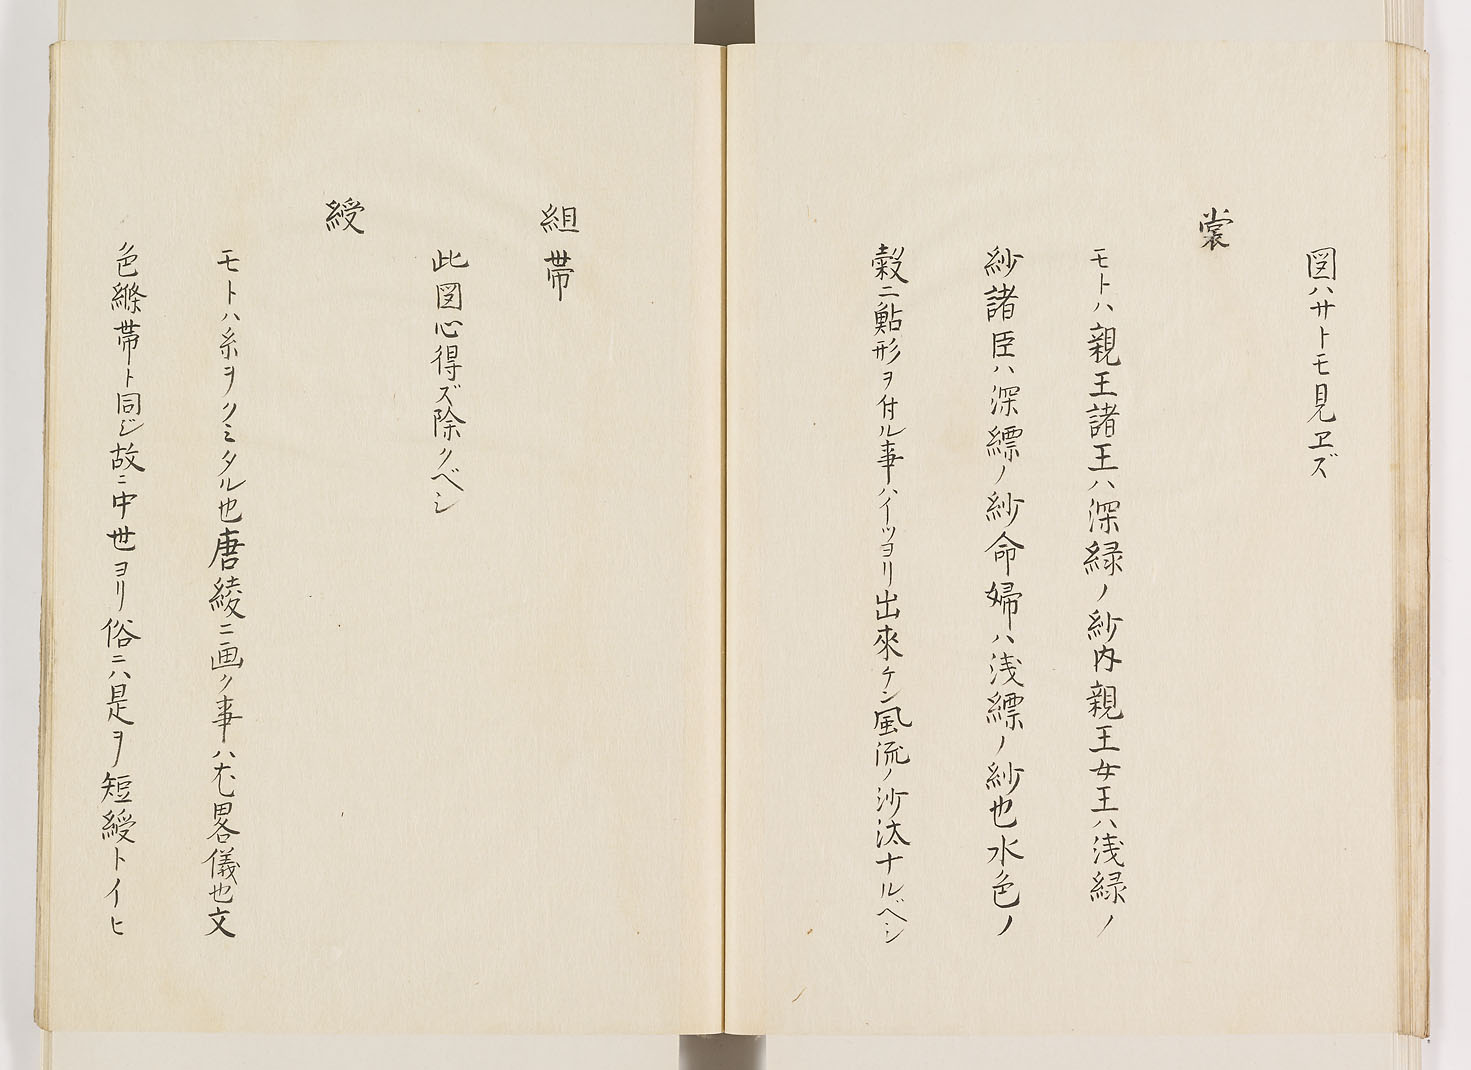 図ハサトモ見ヱズ
裳
モトハ親王諸王ハ深緑ノ紗内親王女王ハ浅緑ノ
紗諸臣ハ深縹ノ紗命婦ハ浅縹ノ紗也水色ノ
縠ニ鮎形ヲ付ル事ハイツヨリ出來ケン風流ノ沙汰ナルベシ
組帯
此図心得ズ除クベシ
綬
モトハ糸ヲクミタル也唐綾ニ画ク事ハ尤畧儀也文
色縧帯ト同ジ故ニ中世ヨリ俗ニハ是ヲ短綬トイヒ